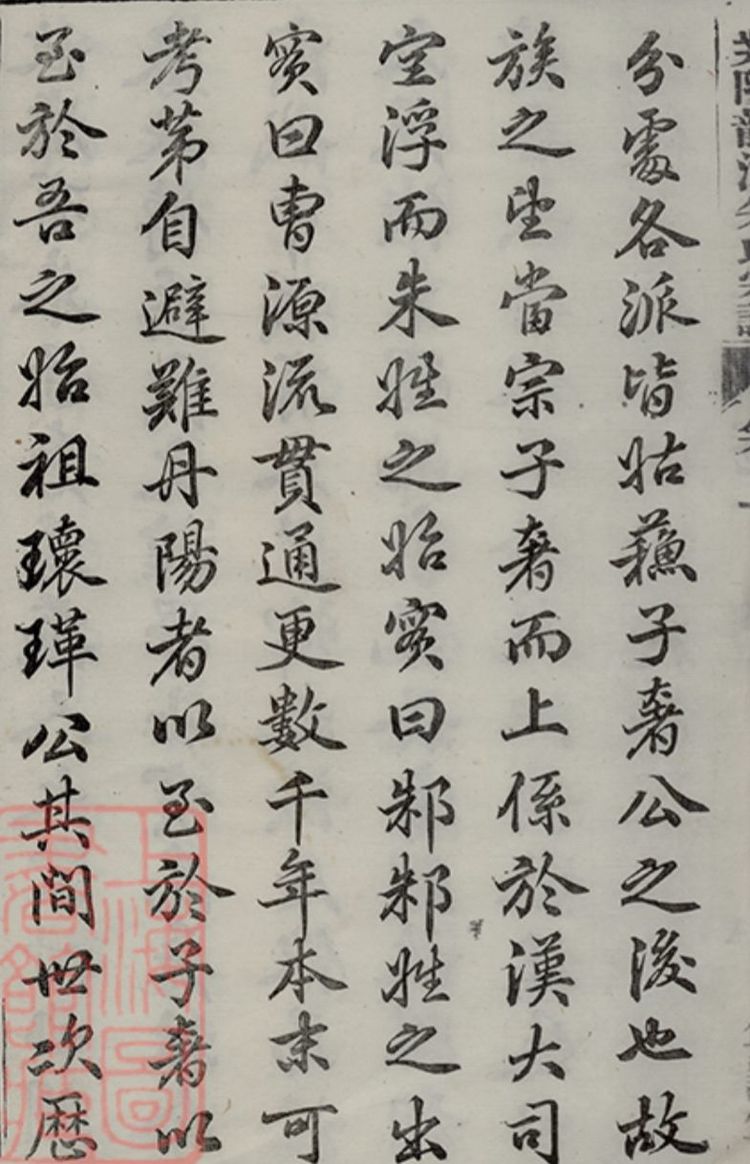 分處各派皆姑蘓子奢公之後也故
族之望當宗子奢而上係於漢大司
空浮而朱姓之始實曰邾邾姓之出
實曰曹源流貫通更數千年本末可
考第自避難丹陽者以至於子奢以
至於吾之始祖瓌瑋公其間世次歷
上海圖
書館藏